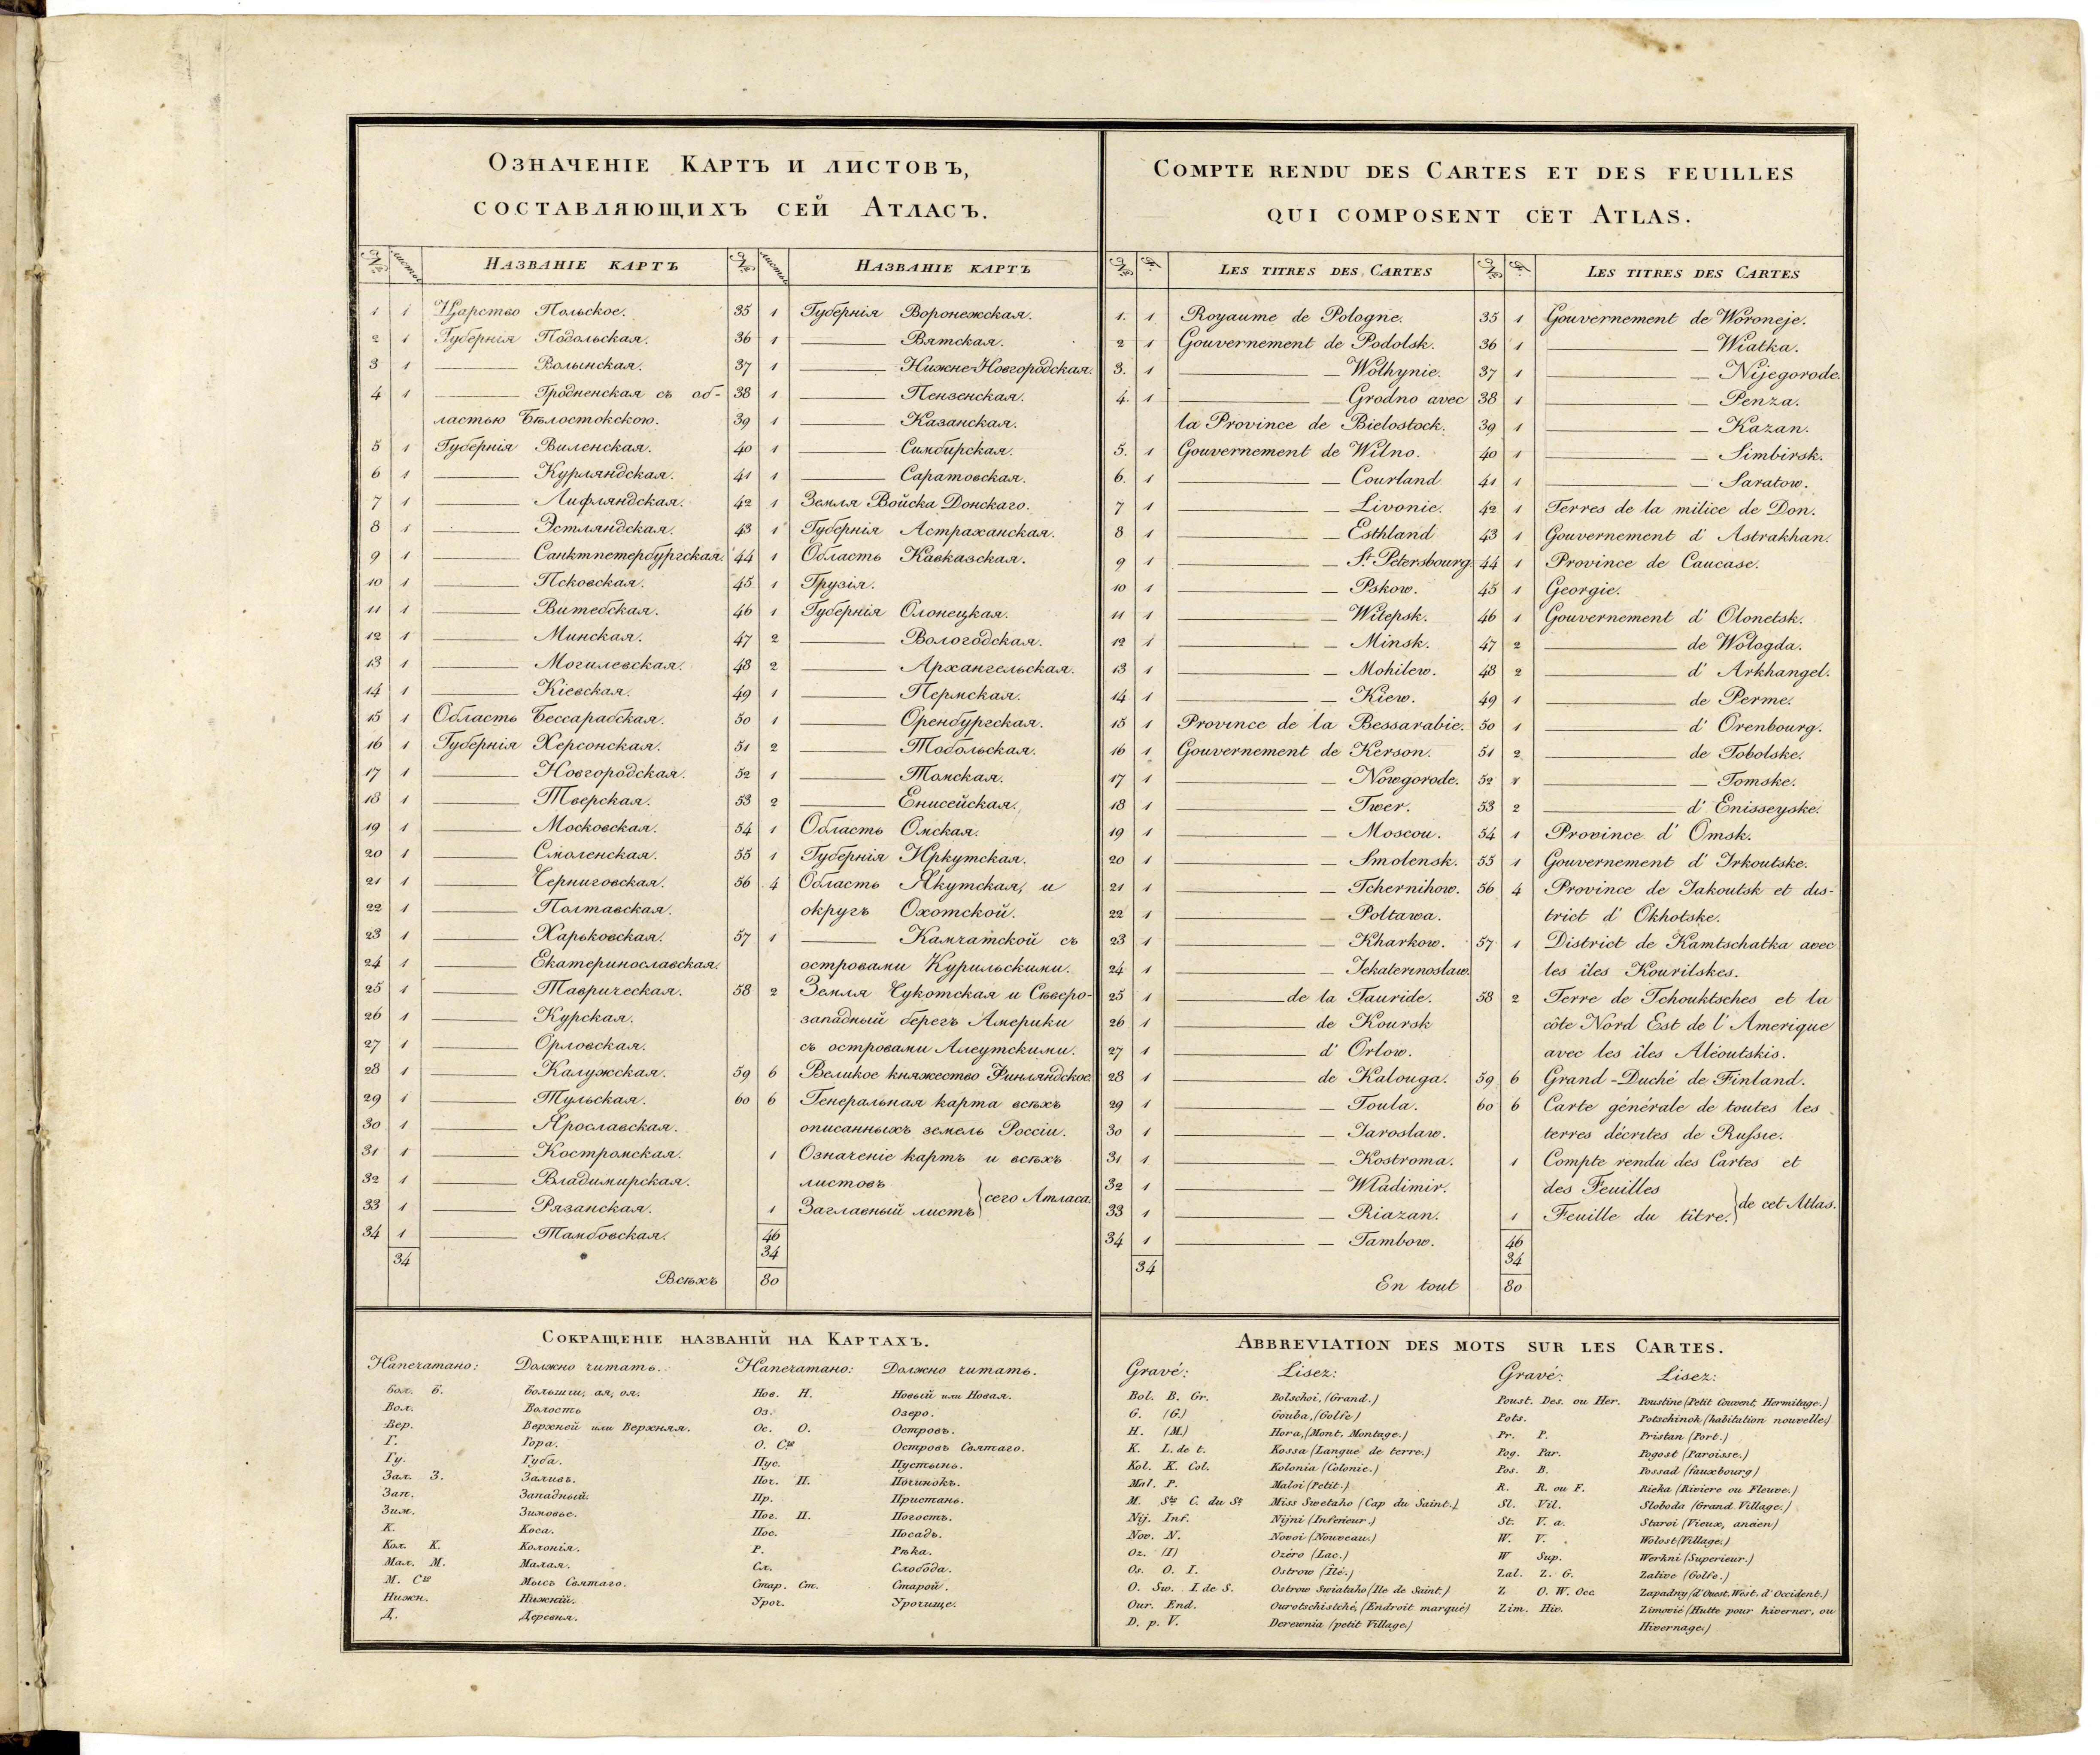 Означеніе Картъ и листовъ,
составляющихъ сей Атласъ.
№ листы Названіе картъ № листы Названіе картъ
1 1 Царство Польское. 35 1 Губернія Воронежская.
2 1 Губернія Подольская. 36 1 ——— Вятская.
3 1 ——— Волынская. 37 1 ——— Нижне-Новгородская.
4 1 ——— Гродненская съ об- 38 1 ——— Пензенская.
ластью Бѣлостокскою. 39 1 ——— Казанская.
5 1 Губернія Виленская. 40 1 ——— Симбирская.
6 1 ——— Курляндская. 41 1 ——— Саратовская.
7 1 ——— Лифляндская. 42 1 Земля Войска Донскаго.
8 1 ——— Эстляндская. 43 1 Губернія Астраханская.
9 1 ——— Санктпетербургская. 44 1 Область Кавказская.
10 1 ——— Псковская. 45 1 Грузія.
11 1 ——— Витебская. 46 1 Губернія Олонецкая.
12 1 ——— Минская. 47 2 ——— Вологодская.
13 1 ——— Могилевская. 48 2 ——— Архангельская.
14 1 ——— Кіевская. 49 1 ——— Пермская.
15 1 Область Бессарабская. 50 1 ——— Оренбургская.
16 1 Губернія Херсонская. 51 2 ——— Тобольская.
17 1 ——— Новгородская. 52 1 ——— Томская.
18 1 ——— Тверская. 53 2 ——— Енисейская.
19 1 ——— Московская. 54 1 Область Омская.
20 1 ——— Смоленская. 55 1 Губернія Иркутская.
21 1 ——— Черниговская. 56 4 Область Якутская, и
22 1 ——— Полтавская. округъ Охотской.
23 1 ——— Харьковская. 57 1 ——— Камчатской съ
24 1 ——— Екатеринославская. островами Курильскими.
25 1 ——— Таврическая. 58 2 Земля Чукотская и Сѣверо-
26 1 ——— Курская. западный берегъ Америки
27 1 ——— Орловская. съ островами Алеутскими.
28 1 ——— Калужская. 59 6 Великое княжество Финляндское.
29 1 ——— Тульская. 60 6 Генеральная карта всѣхъ
30 1 ——— Ярославская. описанныхъ земель Россіи.
31 1 ——— Костромская. 1 Означеніе картъ и всѣхъ
32 1 ——— Владимирская. листовъ
33 1 ——— Рязанская. 1 Заглавный листъ } сего Атласа.
34 1 ——— Тамбовская. 46
34 34
Всѣхъ 80
Compte rendu des Cartes et des feuilles
qui composent cet Atlas.
№ f. Les titres des Cartes № f. Les titres des Cartes
1. 1 Royaume de Pologne. 35 1 Gouvernement de Woroneje.
2 1 Gouvernement de Podolsk. 36 1 ——— — Wiatka.
3. 1 ——— — Wolhynie. 37 1 ——— — Nijegorode.
4. 1 ——— — Grodno avec 38 1 ——— — Penza.
la Province de Bielostock. 39 1 ——— — Kazan.
5. 1 Gouvernement de Wilno. 40 1 ——— — Simbirsk.
6. 1 ——— — Courland 41 1 ——— — Saratow.
7 1 ——— — Livonie. 42 1 Terres de la milice de Don.
8 1 ——— — Esthland 43 1 Gouvernement d' Astrakhan.
9 1 ——— — St. Petersbourg. 44 1 Province de Caucase.
10 1 ——— — Pskow. 45 1 Georgie.
11 1 ——— — Witepsk. 46 1 Gouvernement d' Olonetsk.
12 1 ——— — Minsk. 47 2 ——— de Wologda.
13 1 ——— — Mohilew. 48 2 ——— d' Arkhangel.
14 1 ——— — Kiew. 49 1 ——— de Perme.
15 1 Province de la Bessarabie. 50 1 ——— d' Orenbourg.
16 1 Gouvernement de Kerson. 51 2 ——— de Tobolske.
17 1 ——— — Nowgorode. 52 1 ——— — Tomske.
18 1 ——— — Twer. 53 2 ——— d' Enisseyske.
19 1 ——— — Moscou. 54 1 Province d' Omsk.
20 1 ——— — Smolensk. 55 1 Gouvernement d' Irkoutske.
21 1 ——— — Tchernihow. 56 4 Province de Jakoutsk et dis-
22 1 ——— — Poltawa. trict d' Okhotske.
23 1 ——— — Kharkow. 57 1 District de Kamtschatka avec
24 1 ——— — Jekaterinoslaw. les îles Kourilskes.
25 1 ——— de la Tauride. 58 2 Terre de Tchouktsches et la
26 1 ——— de Koursk côte Nord Est de l' Amerique
27 1 ——— d' Orlow. avec les îles Aléoutskis.
28 1 ——— de Kalouga. 59 6 Grand-Duché de Finland.
29 1 ——— — Toula. 60 6 Carte générale de toutes les
30 1 ——— — Jaroslaw. terres décrites de Russie.
31 1 ——— — Kostroma. 1 Compte rendu des Cartes et
32 1 ——— — Wladimir. des Feuilles
33 1 ——— — Riazan. 1 Feuille du titre. } de cet Atlas.
34 1 ——— — Tambow. 46
34 34
En tout 80
Сокращеніе названій на Картахъ.
Напечатано: Должно читать. Напечатано: Должно читать.
Бол. Б. Большіи, ая, ое. Нов. Н. Новый или Новая.
Вол. Волость Оз. Озеро.
Вер. Верхней или Верхняя. Ос. О. Островъ.
Г. Гора. О. Сго Островъ Святаго.
Гу. Губа. Пус. Пустынь.
Зал. З. Заливъ. Поч. П. Починокъ.
Зап. Западный. Пр. Пристань.
Зим. Зимовье. Пог. П. Погостъ.
К. Коса. Пос. Посадъ.
Кол. К. Колонія. Р. Рѣка.
Мал. М. Малая. Сл. Слобода.
М. Сго Мысъ Святаго. Стар. Ст. Старой.
Нижн. Нижній. Уроч. Урочище.
Д. Деревня.
Abbreviation des mots sur les Cartes.
Gravé: Lisez: Gravé: Lisez:
Bol. B. Gr. Bolschoi, (Grand.) Poust. Des. ou Her. Poustine (Petit Couvent, Hermitage.)
G. (G.) Gouba, (Golfe) Pots. Potschinok (habitation nouvelle)
H. (M.) Hora, (Mont. Montage.) Pr. P. Pristan (Port.)
K. L. de t. Kossa (Langue de terre.) Pog. Par. Pogost (Paroisse.)
Kol. K. Col. Kolonia (Colonie.) Pos. B. Possad (fauxbourg)
Mal. P. Maloi (Petit.) R. R. ou F. Rieka (Riviere ou Fleuve.)
M. Sto C. du St Miss Swetaho (Cap du Saint.) Sl. Vil. Sloboda (Grand Village.)
Nij. Inf. Nijni (Inferieur.) St. V. a. Staroi (Vieux, ancien)
Nov. N. Novoi (Nouveau.) W. V. Wolost (Village.)
Oz. (I) Ozéro (Lac.) W Sup. Werhni (Superieur.)
Os. O. I. Ostrow (Île.) Zal. Z. G. Zalive (Golfe.)
O. Sw. I. de S. Ostrow Swiataho (Ile de Saint.) Z O. W. Occ. Zapadny (d'Ouest. West. d'Occident.)
Our. End. Ourotschistché, (Endroit marqué) Zim. Hiv. Zimovié (Hutte pour hiverner, ou
D. p. V. Derewnia (petit Village.) Hivernage.)